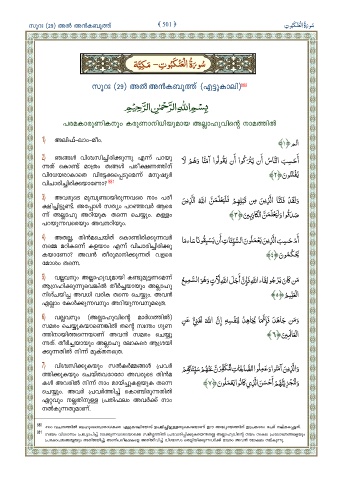 സൂറഃ (29) അൽ അൻകബൂത്ത്
﴾ 501 ﴿
سُورَةُ الْعَنكَبُوتِ
سُورَةُ الْعَنكَبُوتِ - مَكِّيَّة
സൂറഃ (29) അൽ അൻകബൂത്ത് (എട്ടുകാലി)
بِسْمِ اللَّهِ الرَّحْمَٰنِ الرَّحِيمِ
പരമകാരുണികനും കരുണാനിധിയുമായ അല്ലാഹുവിന്റെ നാമത്തിൽ
1) അലിഫ്-ലാം-മീം.
الٓمٓ ﴿١﴾
2) ഞങ്ങൾ വിശ്വസിച്ചിരിക്കുന്നു എന്ന് പറയു
ന്നത് കൊണ്ട് മാത്രം തങ്ങൾ പരീക്ഷണത്തിന്
വിധേയരാകാതെ വിട്ടേക്കപ്പെടുമെന്ന് മനുഷ്യർ
വിചാരിച്ചിരിക്കയാണോ?
أَحَسِبَ النَّاسُ أَن يُتْرَكُوا أَن يَقُولُوا آمَنَّا وَهُمْ لَا
يُفْتَنُونَ ﴿٢﴾
3) അവരുടെ മുമ്പുണ്ടായിരുന്നവരെ നാം പരീ
ക്ഷിച്ചിട്ടുണ്ട്. അപ്പോൾ സത്യം പറഞ്ഞവർ ആരെ
ന്ന് അല്ലാഹു അറിയുക തന്നെ ചെയ്യും. കള്ളം
പറയുന്നവരെയും അവനറിയും.
وَلَقَدْ فَتَنَّا الَّذِينَ مِن قَبْلِهِمْ فَلَيَعْلَمَنَّ اللَّهُ الَّذِينَ
صَدَقُوا وَلَيَعْلَمَنَّ الْكَاذِبِينَ ﴿٣﴾
4) അതല്ല, തിന്മചെയ്ത് കൊണ്ടിരിക്കുന്നവർ
നമ്മെ മറികടന്ന് കളയാം എന്ന് വിചാരിച്ചിരിക്കു
കയാണോ? അവൻ തീരുമാനിക്കുന്നത് വളരെ
മോശം തന്നെ.
أَمْ حَسِبَ الَّذِينَ يَعْمَلُونَ السَّيِّئَاتِ أَن يَسْبِقُونَا سَاءَ مَا
يَحْكُمُونَ ﴿٤﴾
5) വല്ലവനും അല്ലാഹുവുമായി കണ്ടുമുട്ടണമെന്ന്
ആഗ്രഹിക്കുന്നുവെങ്കിൽ തീർച്ചയായും അല്ലാഹു
നിശ്ചയിച്ച അവധി വരിക തന്നെ ചെയ്യും. അവൻ
എല്ലാം കേൾക്കുന്നവനും അറിയുന്നവനുമത്രെ.
مَن كَانَ يَرْجُو لِقَاءَ اللَّهِ فَإِنَّ أَجَلَ اللَّهِ لَآتٍ وَهُوَ السَّمِيعُ
الْعَلِيمُ ﴿٥﴾
6) വല്ലവനും (അല്ലാഹുവിന്റെ മാർഗത്തിൽ)
സമരം ചെയ്യുകയാണെങ്കിൽ തന്റെ സ്വന്തം ഗുണ
ത്തിനായിത്തന്നെയാണ് അവൻ സമരം ചെയ്യു
ന്നത്. തീർച്ചയായും അല്ലാഹു ലോകരെ ആശ്രയി
ക്കുന്നതിൽ നിന്ന് മുക്തനത്രെ.
وَمَن جَاهَدَ فَإِنَّمَا يُجَاهِدُ لِنَفْسِهِ إِنَّ اللَّهَ لَغَنِيٌّ عَنِ
الْعَالَمِينَ ﴿٦﴾
7) വിശ്വസിക്കുകയും സൽകർമ്മങ്ങൾ പ്രവർ
ത്തിക്കുകയും ചെയ്തവരാരോ അവരുടെ തിന്മ
കൾ അവരിൽ നിന്ന് നാം മായിച്ചുകളയുക തന്നെ
ചെയ്യും. അവർ പ്രവർത്തിച്ച് കൊണ്ടിരുന്നതിൽ
ഏറ്റവും നല്ലതിനുള്ള പ്രതിഫലം അവർക്ക് നാം
നൽകുന്നതുമാണ്.
وَالَّذِينَ آمَنُوا وَعَمِلُوا الصَّالِحَاتِ لَنُكَفِّرَنَّ عَنْهُمْ سَيِّئَاتِهِمْ
وَلَنَجْزِيَنَّهُمْ أَحْسَنَ الَّذِي كَانُوا يَعْمَلُونَ ﴿٧﴾